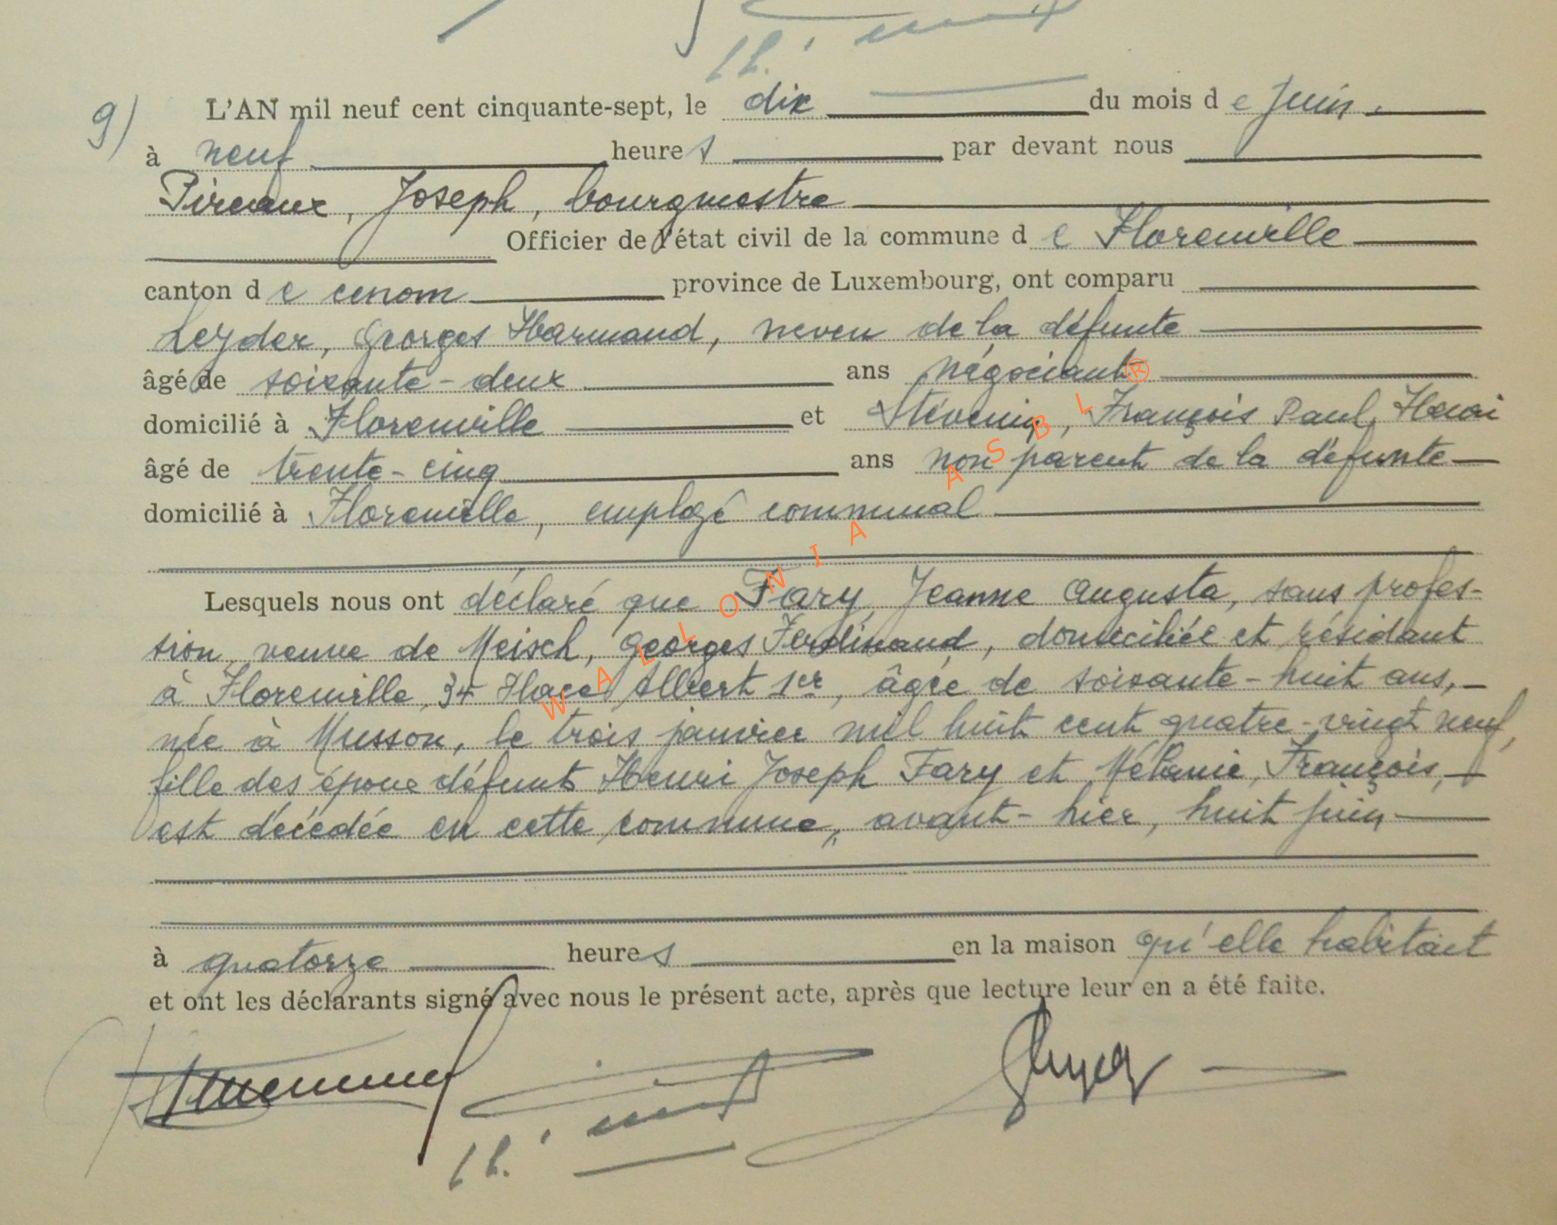 9) L'AN mil neuf cent cinquante-sept, le dix du mois de Juin.
à neuf heures par devant nous
Pireaux, Joseph, bourgmestre
Officier de l'état civil de la commune de Florenville
canton de cenom province de Luxembourg, ont comparu
Leyder, Georges Harmand, neveu de la défunte
âgé de soixante-deux ans négociant
domicilié à Florenville et Stévenin, François Paul, Henri
âgé de trente-cinq ans non parent de la défunte
domicilié à Florenville, employé communal
Lesquels nous ont déclaré que Fary, Jeanne Augusta, sans profes-
sion, veuve de Meisch, Georges Ferdinand, domiciliée et résidant
à Florenville, 34 Place Albert 1er, âgée de soixante-huit ans,
née à Musson, le trois janvier mil huit cent quatre-vingt neuf,
fille des époux défunts Henri Joseph Fary et Mélanie, François,
est décédée en cette commune, avant-hier, huit juin
à quatorze heures en la maison qu'elle habitait
et ont les déclarants signé avec nous le présent acte, après que lecture leur en a été faite.
WALLONIA ASBL ®